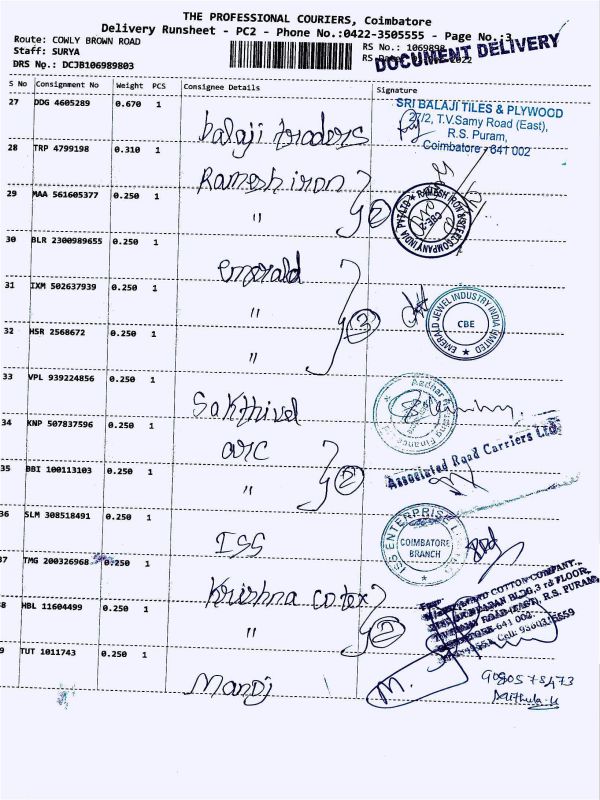 THE PROFESSIONAL COURIERS, Coimbatore
Delivery Runsheet - PC2 - Phone No.:0422-3505555 - Page No.:3
Route: COWLY BROWN ROAD
Staff: SURYA
DRS No.: DCJB106989803
RS No.: 1069898
RS Da 2022
DOCUMENT DELIVERY
S No Consignment No Weight PCS Consignee Details Signature
27 DDG 4605289 0.670 1 balaji traders
SRI BALAJI TILES & PLYWOOD
27/2, T.V.Samy Road (East),
R.S. Puram,
Coimbatore - 641 002
28 TRP 4799198 0.310 1 Ramesh iron
29 MAA 561605377 0.250 1 " 2
RAMESH IRON & STEEL COMPANY INDIA PVT LTD
CBE-2
30 BLR 2300989655 0.250 1 emerald
31 IXM 502637939 0.250 1 " 3
EMERALD JEWEL INDUSTRY INDIA LIMITED
CBE
32 HSR 2568672 0.250 1 "
33 VPL 939224856 0.250 1 Sakthivel
Aadhar Housing Finance
34 KNP 507837596 0.250 1 arc
35 BBI 100113103 0.250 1 " 2
Associated Road Carriers Ltd
36 SLM 308518491 0.250 1 ISS
ISS ENTERPRISE
COIMBATORE
BRANCH
37 TMG 200326968 0.250 1 Krishna cotex
38 HBL 11604499 0.250 1 " 2
COTTON COMPANY
BLDG, 3rd FLOOR,
ROAD (EAST), R.S. PURAM,
641 002
Cell:
9 TUT 1011743 0.250 1 Manoj
M.